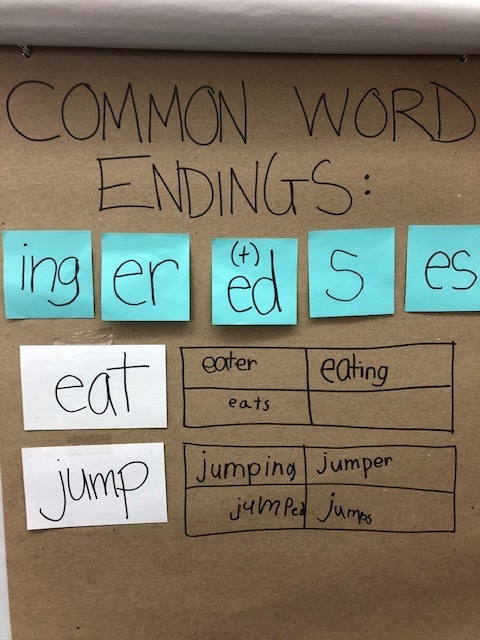 COMMON WORD
ENDINGS:
ing er (t) ed s es
eat
eater eating
eats
jump
jumping jumper
jumped jumps